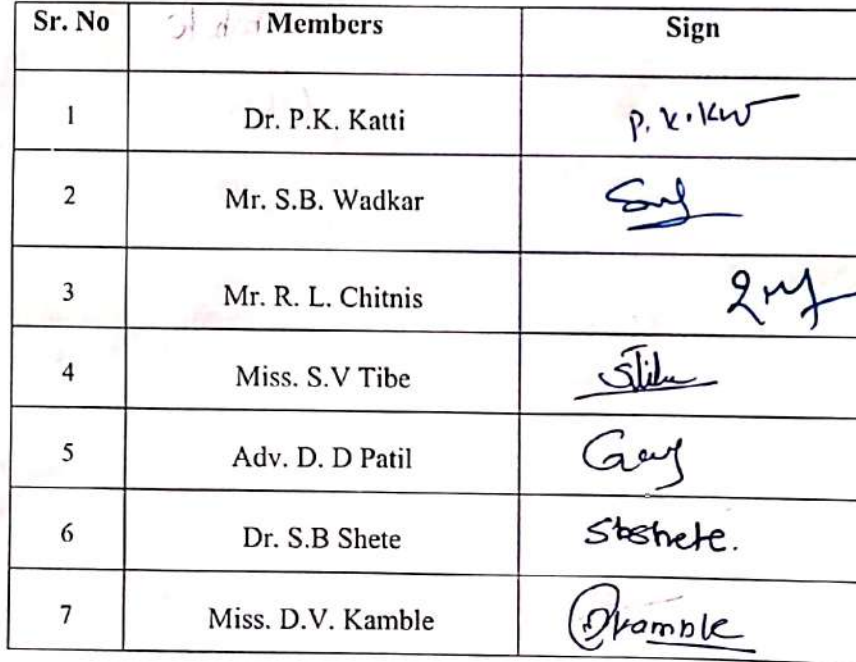 Sr. No Members Sign
1 Dr. P.K. Katti P. K. Kw
2 Mr. S.B. Wadkar
3 Mr. R. L. Chitnis
4 Miss. S.V Tibe STibe
5 Adv. D. D Patil
6 Dr. S.B Shete Sbshete.
7 Miss. D.V. Kamble DVKamble